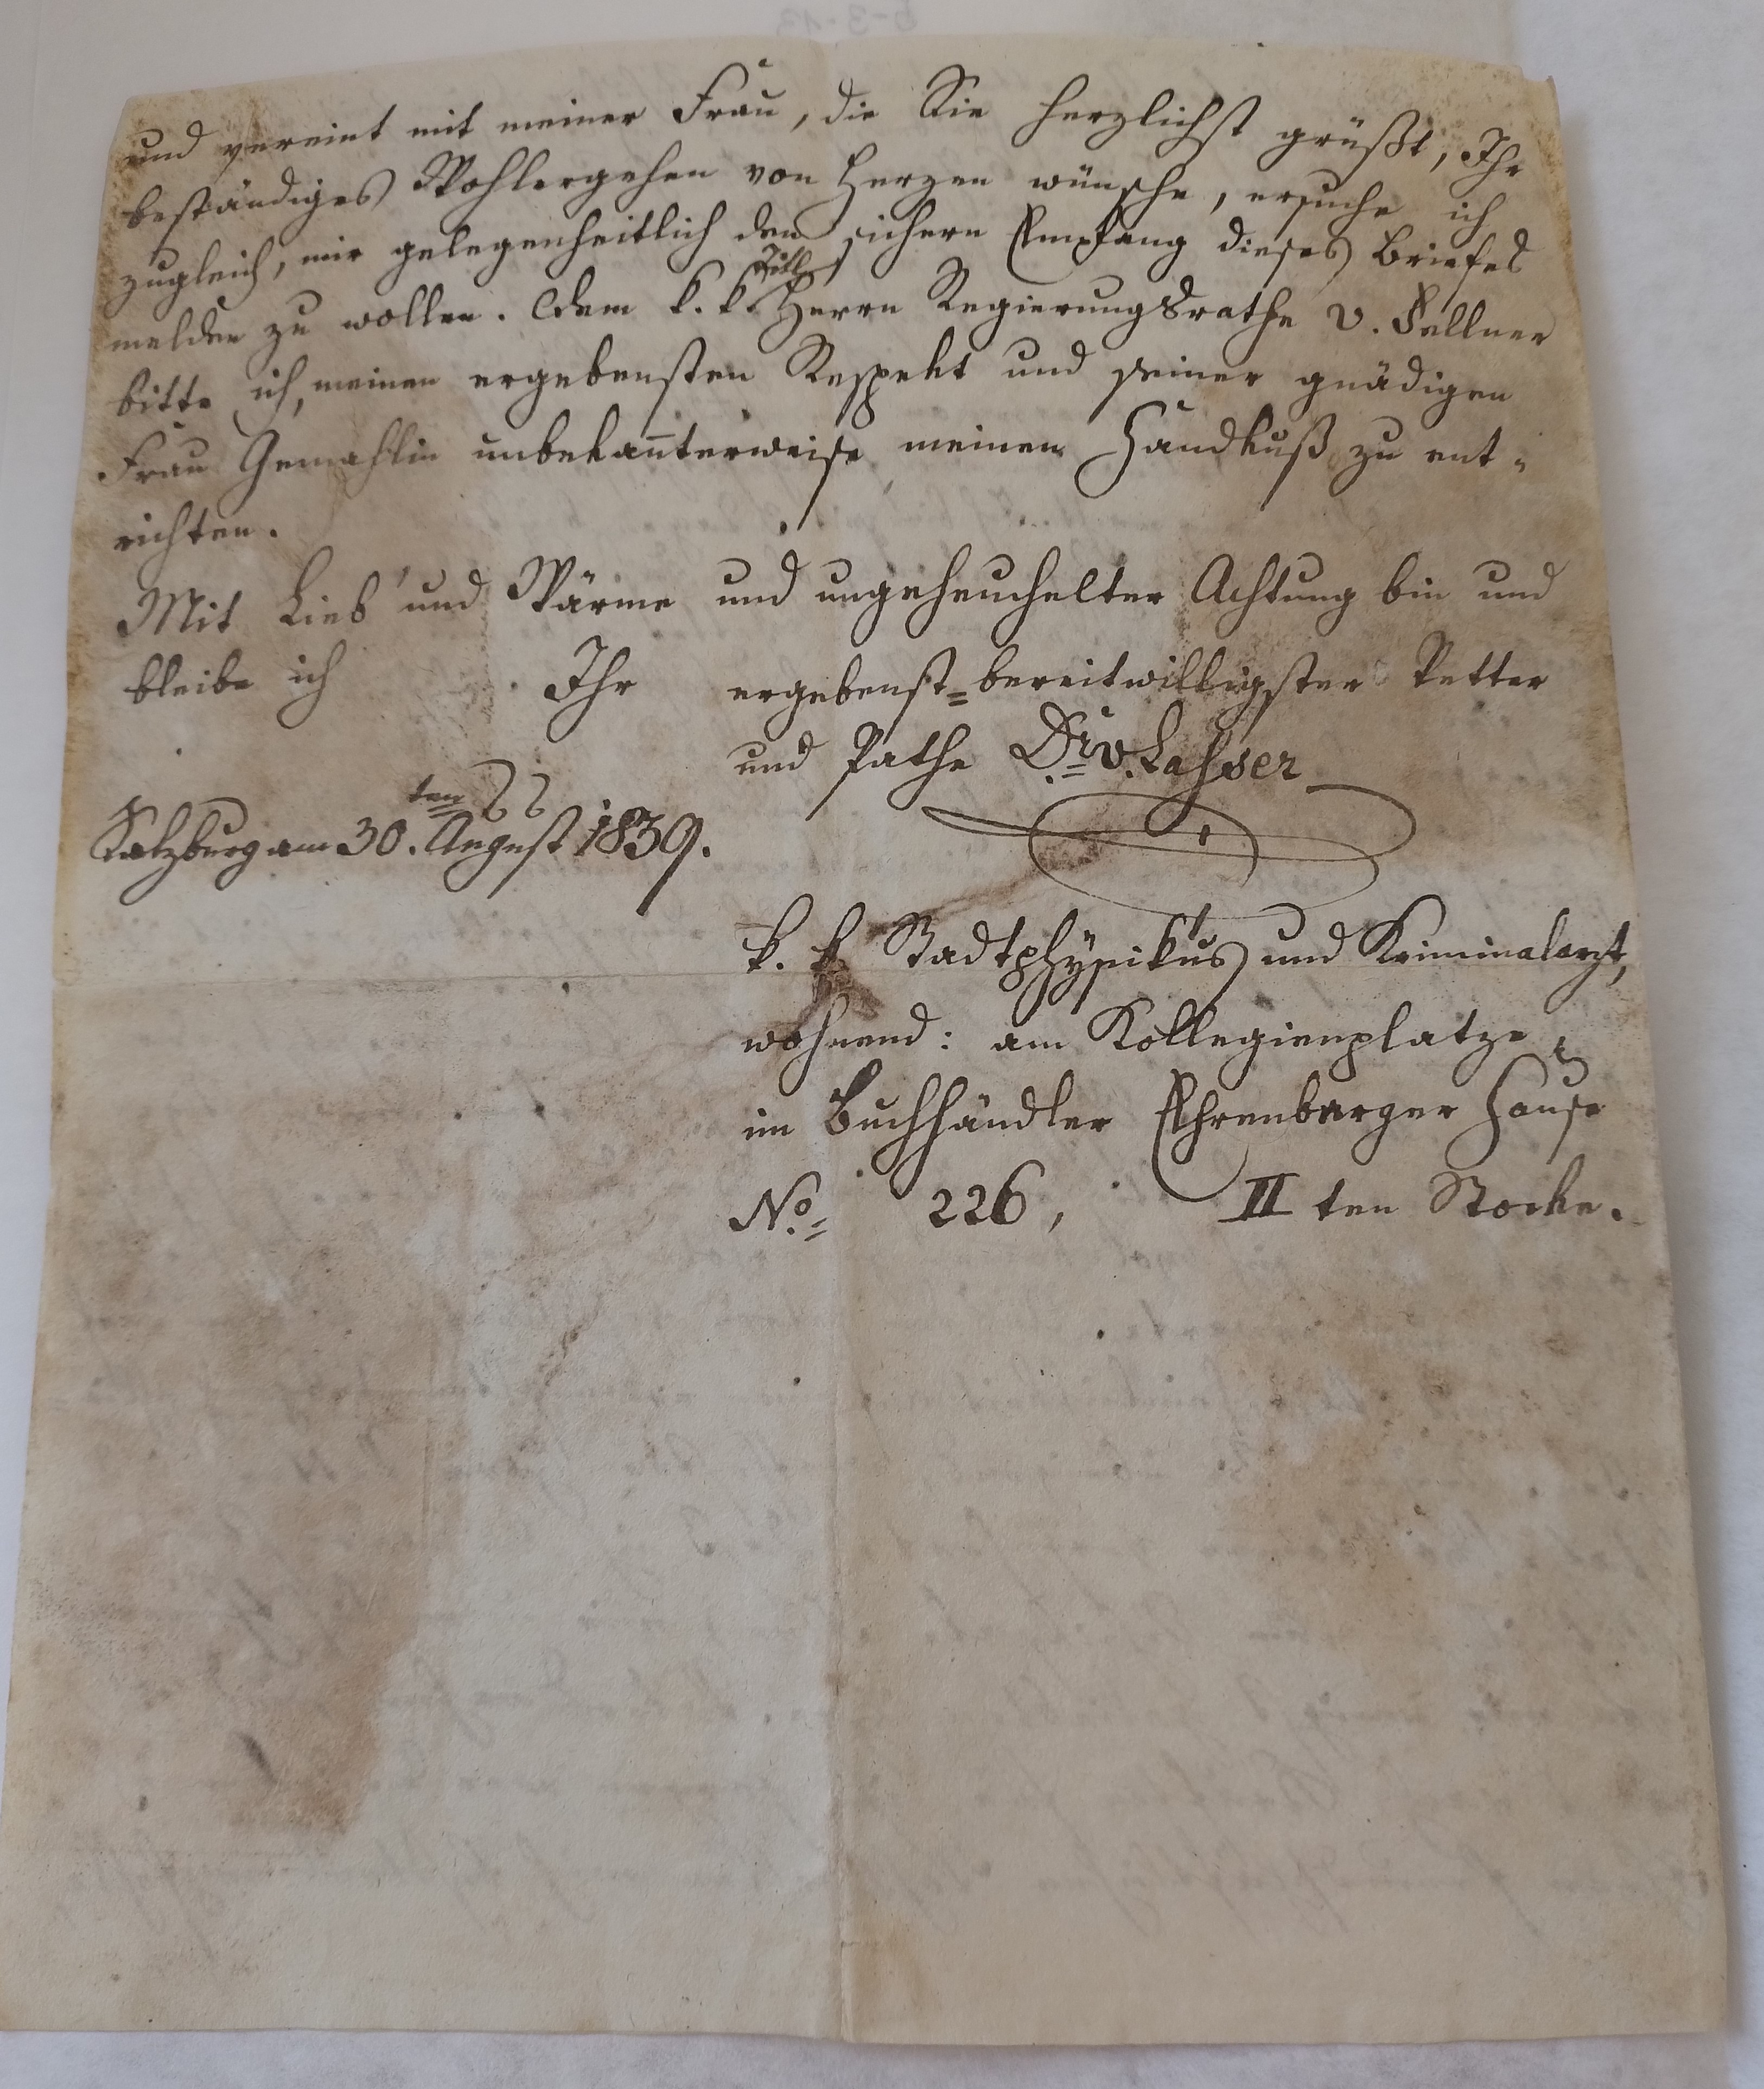 und vereint mit meiner Frau, die Sie herzlichst grüßt, Ihr
beständiges Wohlergehen von Herzen wünsche, ersuche ich
zugleich, mir gelegenheitlich den sichern Empfang dieses Briefes
melden zu wollen. Dem k. k. Titl Herrn Regierungsrathe v. Fellner
bitte ich, meinen ergebensten Respekt und seiner gnädigen
Frau Gemahlin unbekan̅terweise meinen Handkuß zu ent-
richten.
Mit Lieb' und Wärme und ungeheuchelter Achtung bin und
bleibe ich Ihr ergebenst=bereitwilligster Vetter
und Pathe Dr. v. Lasser
Salzburg am 30.ten August 1839.
k. k. Stadtphysikus und Kriminalarzt,
wohnend: am Kollegienplatze,
im Buchhändler Ehrenbarger Hause
No. 226, II ten Stocke.